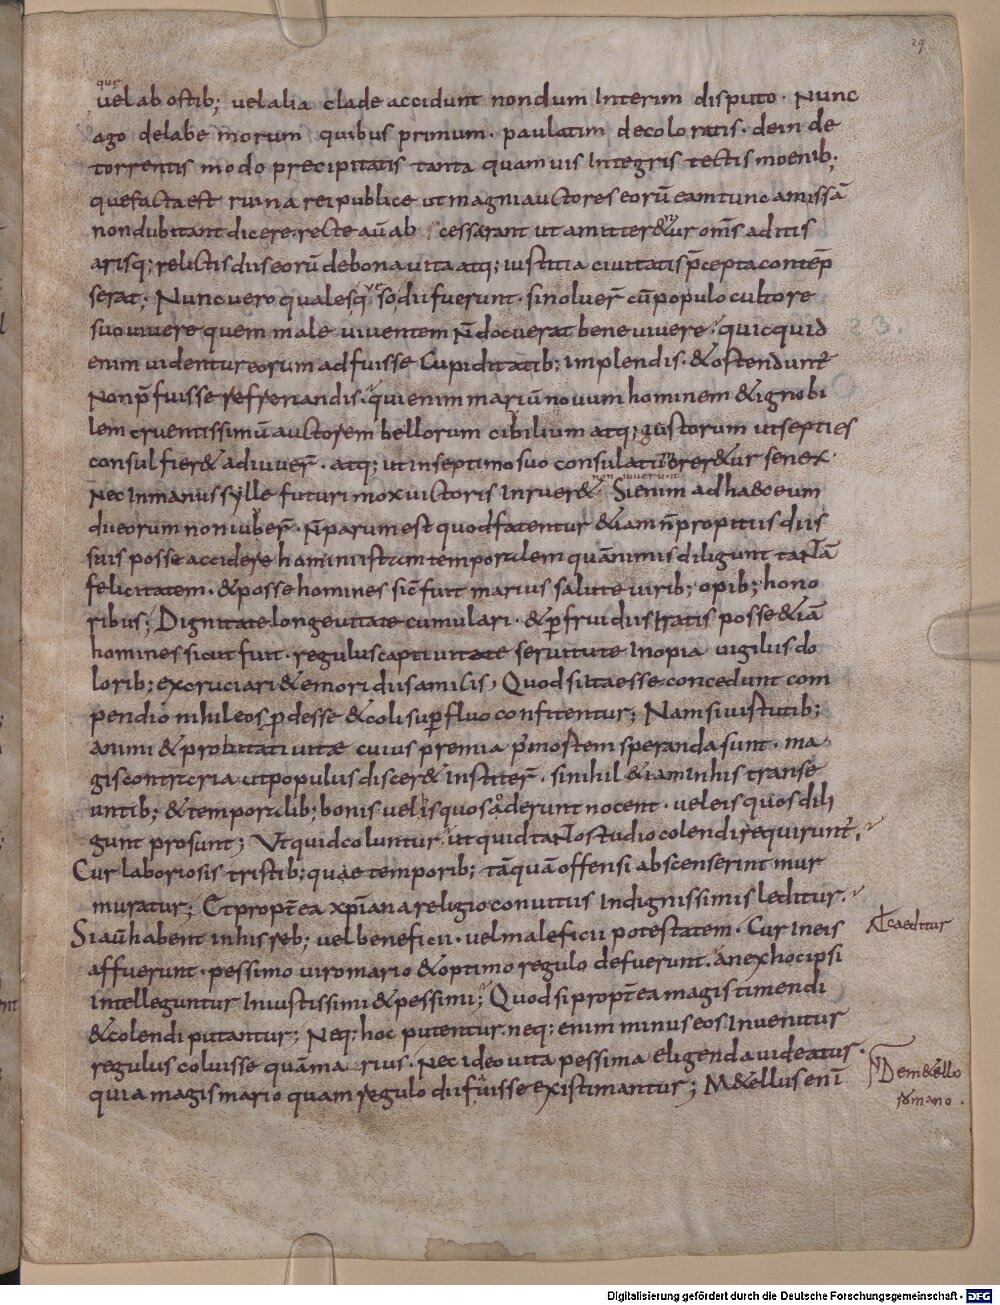 29
que
uel ab ostib; uel alia clade accidunt nondum Interim disputo · Nunc
ago de labe morum quibus primum · paulatim decoloratis · dein de
torrentis modo precipitatis tanta quam uis Integris tectis moenib;
que facta est ruina rei publice ut magni auctores eorū eam tunc amissā
non dubitant dicere recte aū ab scesserant ut amitter&ur om̄s aditis
arisq; relictis dii s eorū de bona uita atq; iustitia ciuitatis p̄cepta contēp
serat; Nunc uero qualesq; so dii fuerunt · si noluer̄ cū populo cultore
suo uiuere quem male uiuentem n̄ docuerat bene uiuere · quic quid 23.
enim uidentur eorum adfuisse Cupiditatib; implendis · & ostendunt̄
Non p̄fuisse refrenandis · qui enim mariū nouum hominem & ignobi
lem cruentissimū auctorem bellorum cibilium atq; gustorum ut septies
consul fier& adiuuer̄ · atq; ut in septimo suo consulatu morer&ur senex ·
non inruerunt
Nec In manus sylle futuri mox uictoris Inruer& Si enim ad haec eum
dii eorum non iuber̄ · n̄ parum est quod fatentur &iam n̄ propitiis diis
suis posse accidere homini istam temporalem quā nimis diligunt tantā
felicitatem · & posse homines sic̄ fuit marius salute uirib; opib; hono
ribus; Dignitate longeuitate cumulari · & p̄frui diis iratis posse &iā
homines sicut fuit · regulus captiuitate seruitute Inopia uigiliis do
lorib; excruciari & emori diis amilis, Quod si ita esse concedunt com
pendio nihil eos p̄desse & coli sup̄fluo confitentur; Nam si uistutib;
animi & probitati uitæ cuius premia p̄ mostem speranda sunt · ma
gis contraria ut populus discer& institer̄ · si nihil &iam in his transe
untib; & temporalib; bonis uel is quos åderunt nocent · uel eis quos dili
gunt prosunt; Vt quid coluntur ut quid tanto studio colendi requirunt̄;
Cur laboriosis tristib; quae temporib; tāquā offensi abscenserint mur
muratur; Et propt̄ea xp̄iana religio conuitus Indignissimis leditur.
Si aū habent in his reb; uel beneficii · uel maleficii potestatem · Cur In eis
caeditur
affuerunt · pessimo uiro mario & optimo regulo defuerunt. an ex hoc ipsi
intelleguntur Iniustissimi & pessimi; Quod si propt̄ea magis timendi
& colendi putantur; Neq; hoc putentur. neq; enim minus eos Inuenitur
regulus coluisse quā ma rius. Nec ideo uita pessima eligenda uideatus ·
quia magis mario quam regulo dii fuisse existimantur; M&ellus enī
De m&ello
romano.
Digitalisierung gefördert durch die Deutsche Forschungsgemeinschaft - DFG